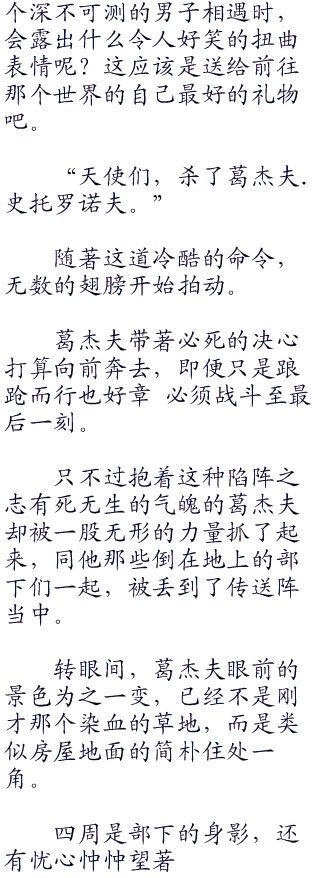 个深不可测的男子相遇时，
会露出什么令人好笑的扭曲
表情呢？这应该是送给前往
那个世界的自己最好的礼物
吧。
“天使们，杀了葛杰夫.
史托罗诺夫。”
随著这道冷酷的命令，
无数的翅膀开始拍动。
葛杰夫带著必死的决心
打算向前奔去，即便只是踉
跄而行也好章 必须战斗至最
后一刻。
只不过抱着这种陷阵之
志有死无生的气魄的葛杰夫
却被一股无形的力量抓了起
来，同他那些倒在地上的部
下们一起，被丢到了传送阵
当中。
转眼间，葛杰夫眼前的
景色为之一变，已经不是刚
才那个染血的草地，而是类
似房屋地面的简朴住处一
角。
四周是部下的身影，还
有忧心忡忡望著